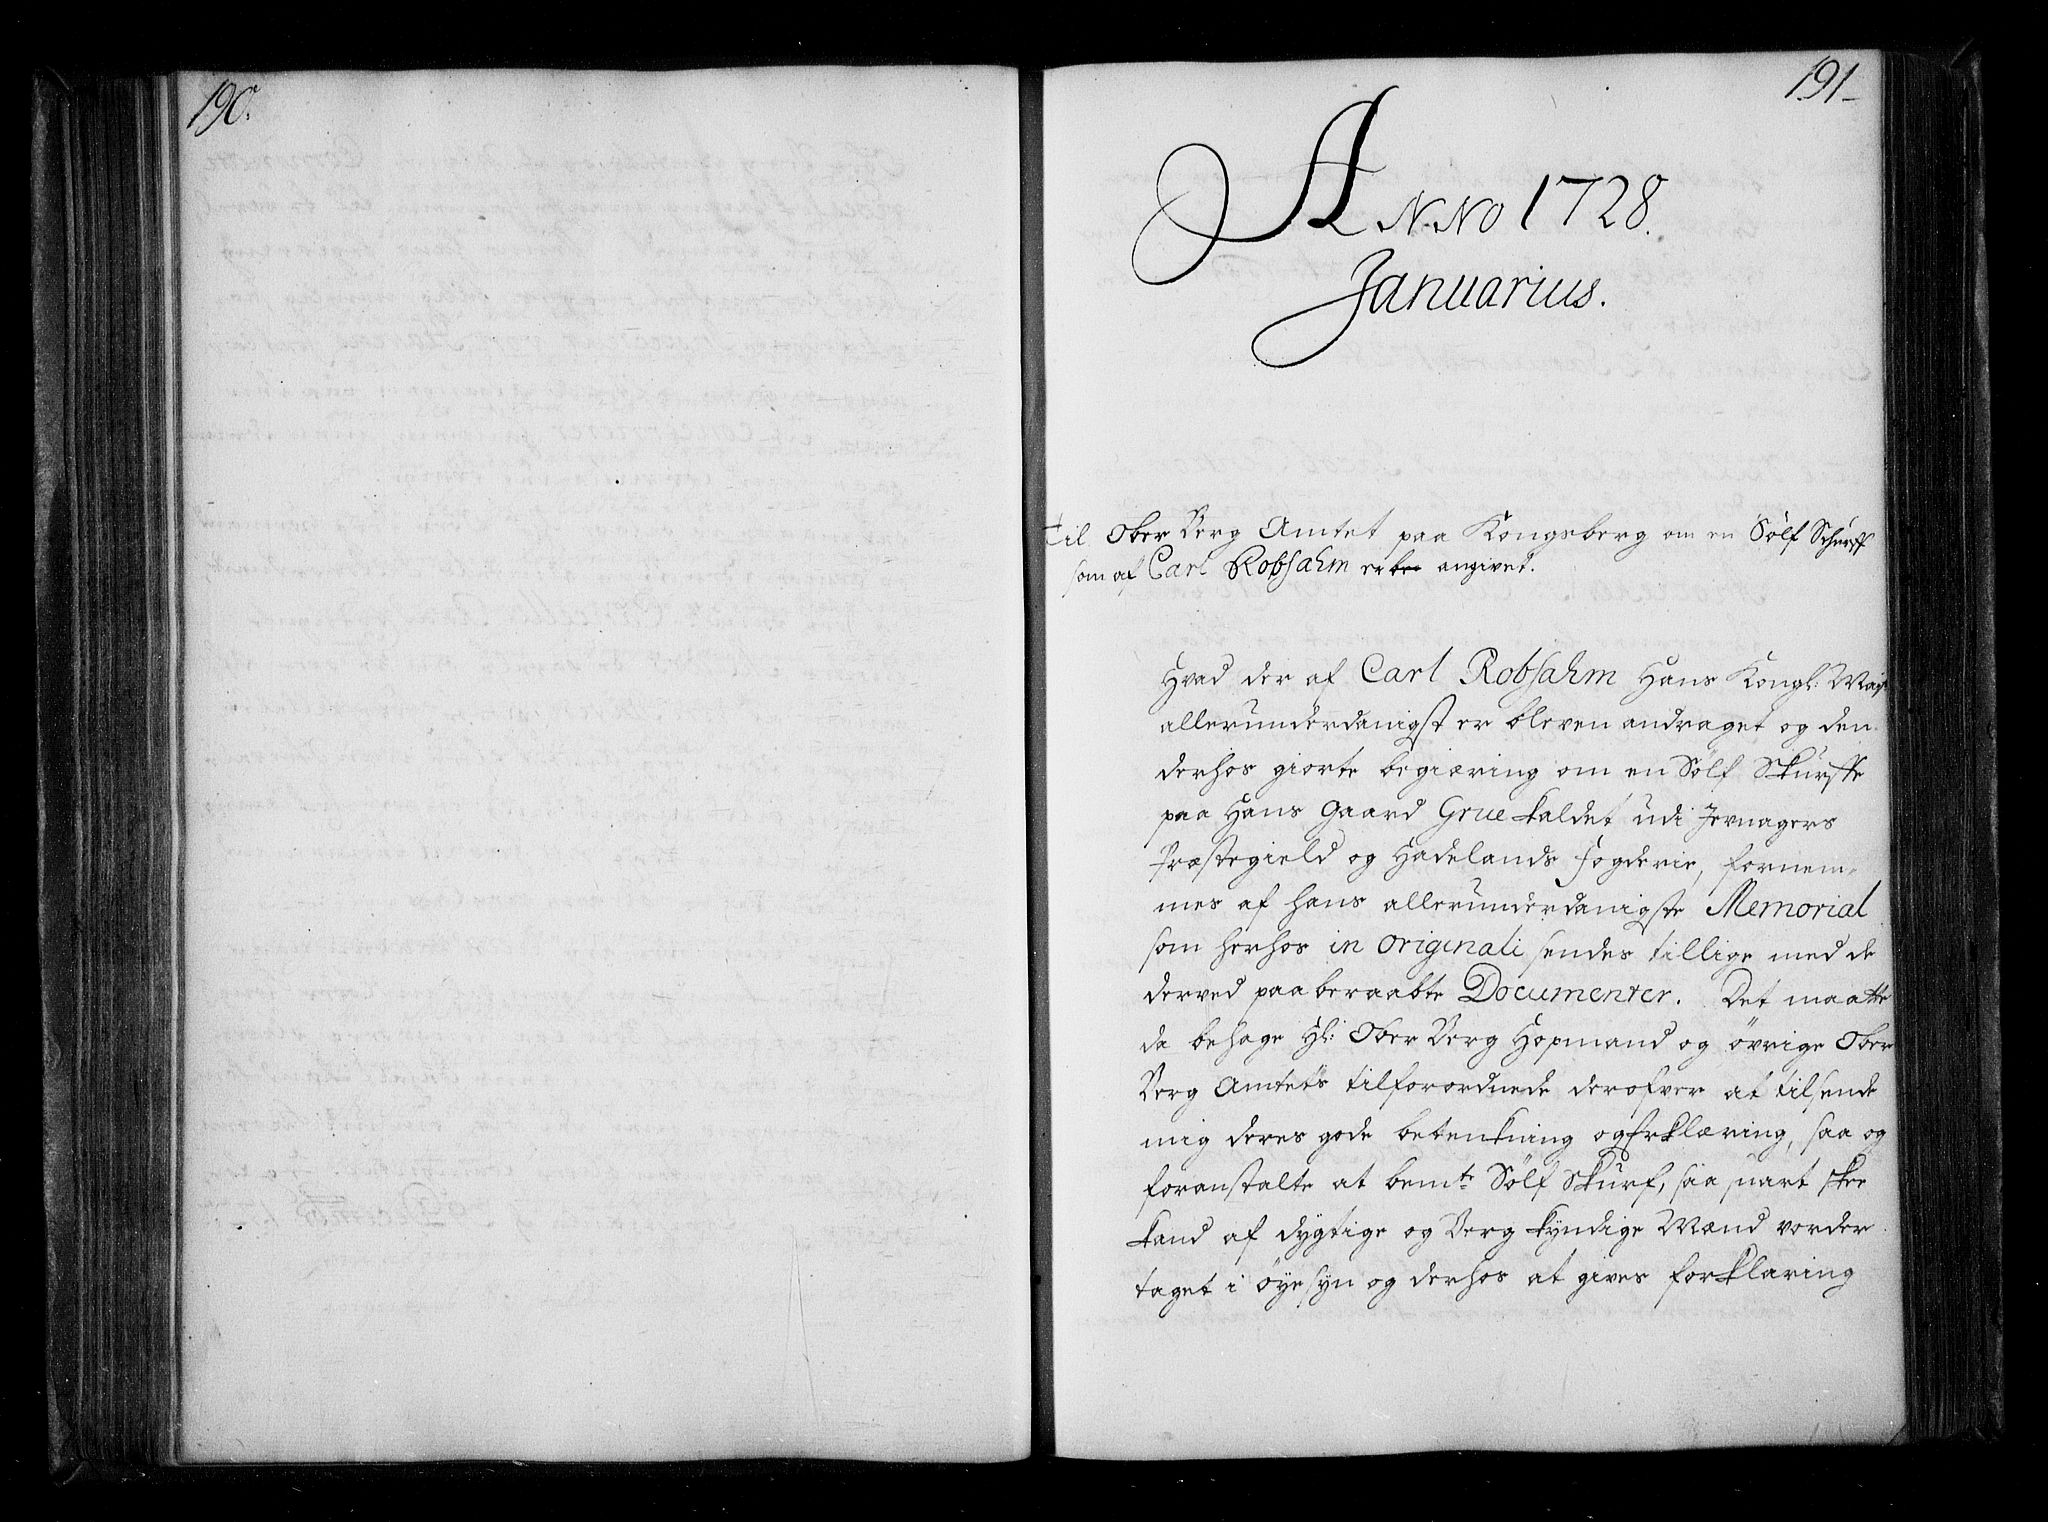 190.
191
ANNO 1728.
Januarius.
Til Ober Berg Amtet paa Kongsberg om en Sølf Schurff
som af Carl Robsahm er angivet.
Hvad der af Carl Robsahm Hans Kongl: May:
allerunderdanigst er bleven andraget og den
derhos giorte begiæring om en Sølf Skurffe
paa Hans Gaard Grue kaldet udi Jevnagers
Præstegield og Hadelands Fogderie, fornem-
mes af hans allerunderdanigste Memorial
som herhos in originali sendes tillige med de
derved paaberaabte Documenter. Det maatte
da behage Hl: Ober Berg Hopmand og øvrige Ober
Berg Amtets tilforordnede derofver at tilsende
mig deres gode betenkning og Erklæring, saa og
foranstalte at bemte Sølf Skurf, saa snart skee
kand af dygtige og Berg kyndige Mænd vorder
taget i øyesyn og derhos at gives forklaring